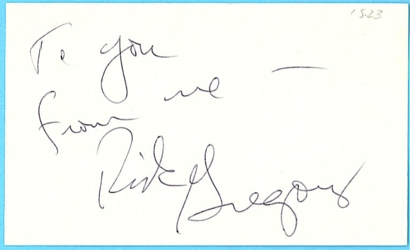 1523
To you
from me —
Gregory